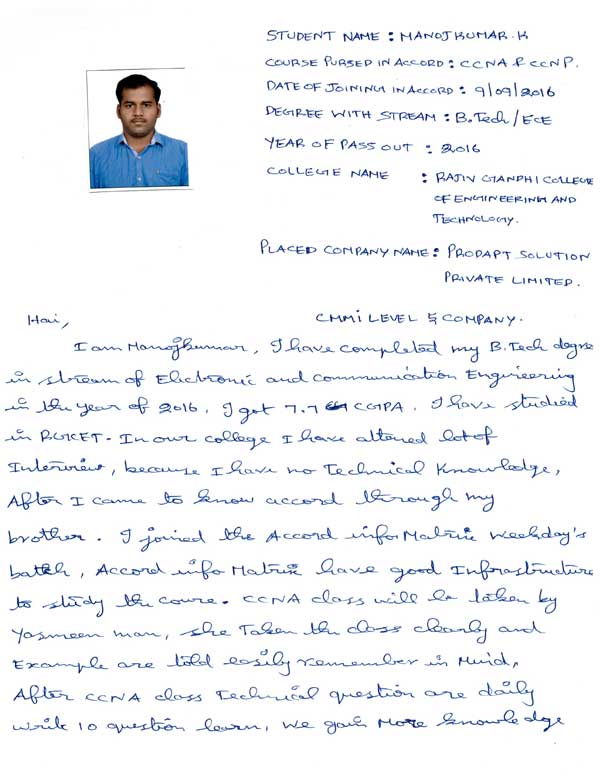 STUDENT NAME : MANOJKUMAR.K
COURSE PURSED IN ACCORD : CCNA & CCNP.
DATE OF JOINING IN ACCORD : 9/09/2016
DEGREE WITH STREAM : B.Tech/ECE
YEAR OF PASS OUT : 2016
COLLEGE NAME : RAJIV GANDHI COLLEGE
OF ENGINEERING AND
TECHNOLOGY.
PLACED COMPANY NAME : PRODAPT SOLUTION
PRIVATE LIMITED.
Hai, CMMI LEVEL 5 COMPANY.
I am Manojkumar, I have completed my B.Tech degree
in stream of Electronic and communication Engineering
in the year of 2016. I got 7.7 CGPA. I have studied
in RGCET. In our college I have attened lot of
Interview, because I have no Technical Knowledge,
After I came to know accord through my
brother. I joined the Accord info Matrix Weekday's
batch, Accord info Matrix have good Infrastructure
to study the course. CCNA class will be taken by
Yasmeen mam, she Taken the class clearly and
Example are told easily remember in Mind,
After CCNA class Technical question are daily
write 10 question learn, We gain More knowledge